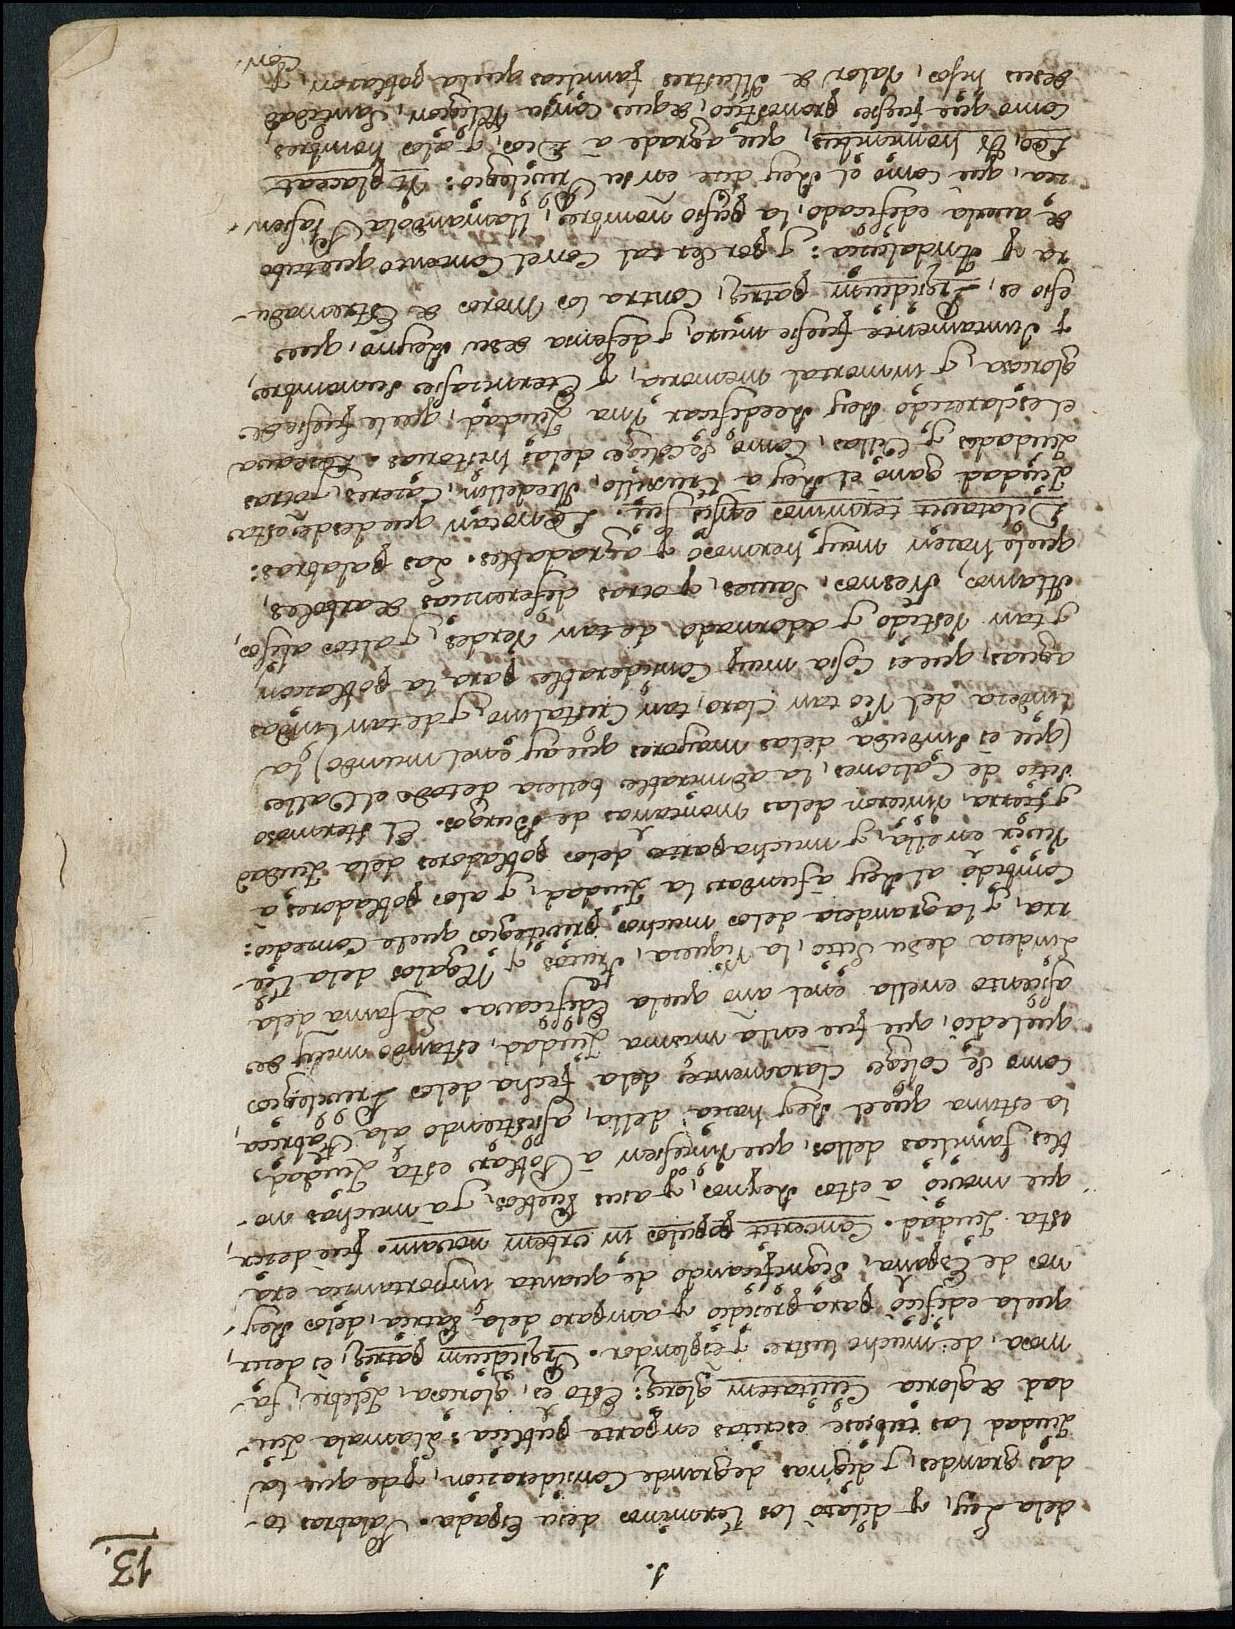 1.
13.
dela Ley, y dilató los terminos desu Espada. Palabras to-
das grandes, y dignas degrande Consideracion, y de que la
Ziudad las tubiese escritas en parte publica: Llamala Ziu-
dad de gloria Ciuitatem gloriȩ: Esto es, gloriosa, Zelebre, fa-
mosa, de mucho lustre y esplendor. Presidium patriȩ, es decir,
quela edificó para presidio y amparo dela Patria, delos Rey-
nos de España, significando de quanta importancia era
esta Ziudad. Concertit populos in urbem nouam. fue decir,
que movió à estos Reynos, y asus Pueblos, y à muchas no-
bles familias dellos, que viniesen à Poblar esta Ziudad,
la estima que el Rey hacia della, asistiendo ala Fabrica,
como se colige claramente dela fecha delos Previlegios
queledió, que fue enla misma Ziudad, estando muy de
asiento enella enel año quela Edificava. La fama dela
Lindeza desu Sitio, la riqueza, frutos y Regalos dela tie-
rra, y la grandeza delos muchos privilegios quele Concedió:
Combidò al Rey à fundar la Ziudad, y alos pobladores à
vivir enella, y mucha parte delos pobladores dela Ziudad
y tierra, vinieron delas Montañas de Burgos. El Hermoso
sitio de Galsones, la admirable belleza detodo el Valle
(que es sinduda delas mayores que ay enel mundo) la
lindeza del rio tan claro, tan Cristalino, y de tan lindas
aguas, que es cosa muy Considerable para la poblacion
y tan vestido y adornado de tan verdes, y altos alisos,
Alamos, Fresnos, Sauces, y otras diferencias de arboles,
quele hacen muy hermoso y agradable. Las palabras:
Dilatauit terminos ensis sui. Denotan que desde esta
Ziudad ganó el Rey a Truxillo, Medellin, Cazeres, y otras
Ziudades y Villas, como se colige delas historias. Deseava
el esclarecido Rey Reedificar Vna Ziudad, quele fuesse de
gloriosa, y inmortal memoria, y Eternizase su nombre,
y Juntamente fuesse muro, y defensa desu Reyno, que
eso es, Presidium patriȩ, contra los Moros de Estremadu-
ra y Andalucia: y por ser tal con el Contento que tubo
de averla edificado, la puso nombre, llamandola Plasen-
cia, que como el Rey dice en su Privilegio: Vt placeat
Deo, et hominibus, que agrade à Dios, y alos hombres,
como que fuese pronostico, de que con la Religion, Santidad
desus hijos, valor de Illustres familias quela poblaron, y
Con.